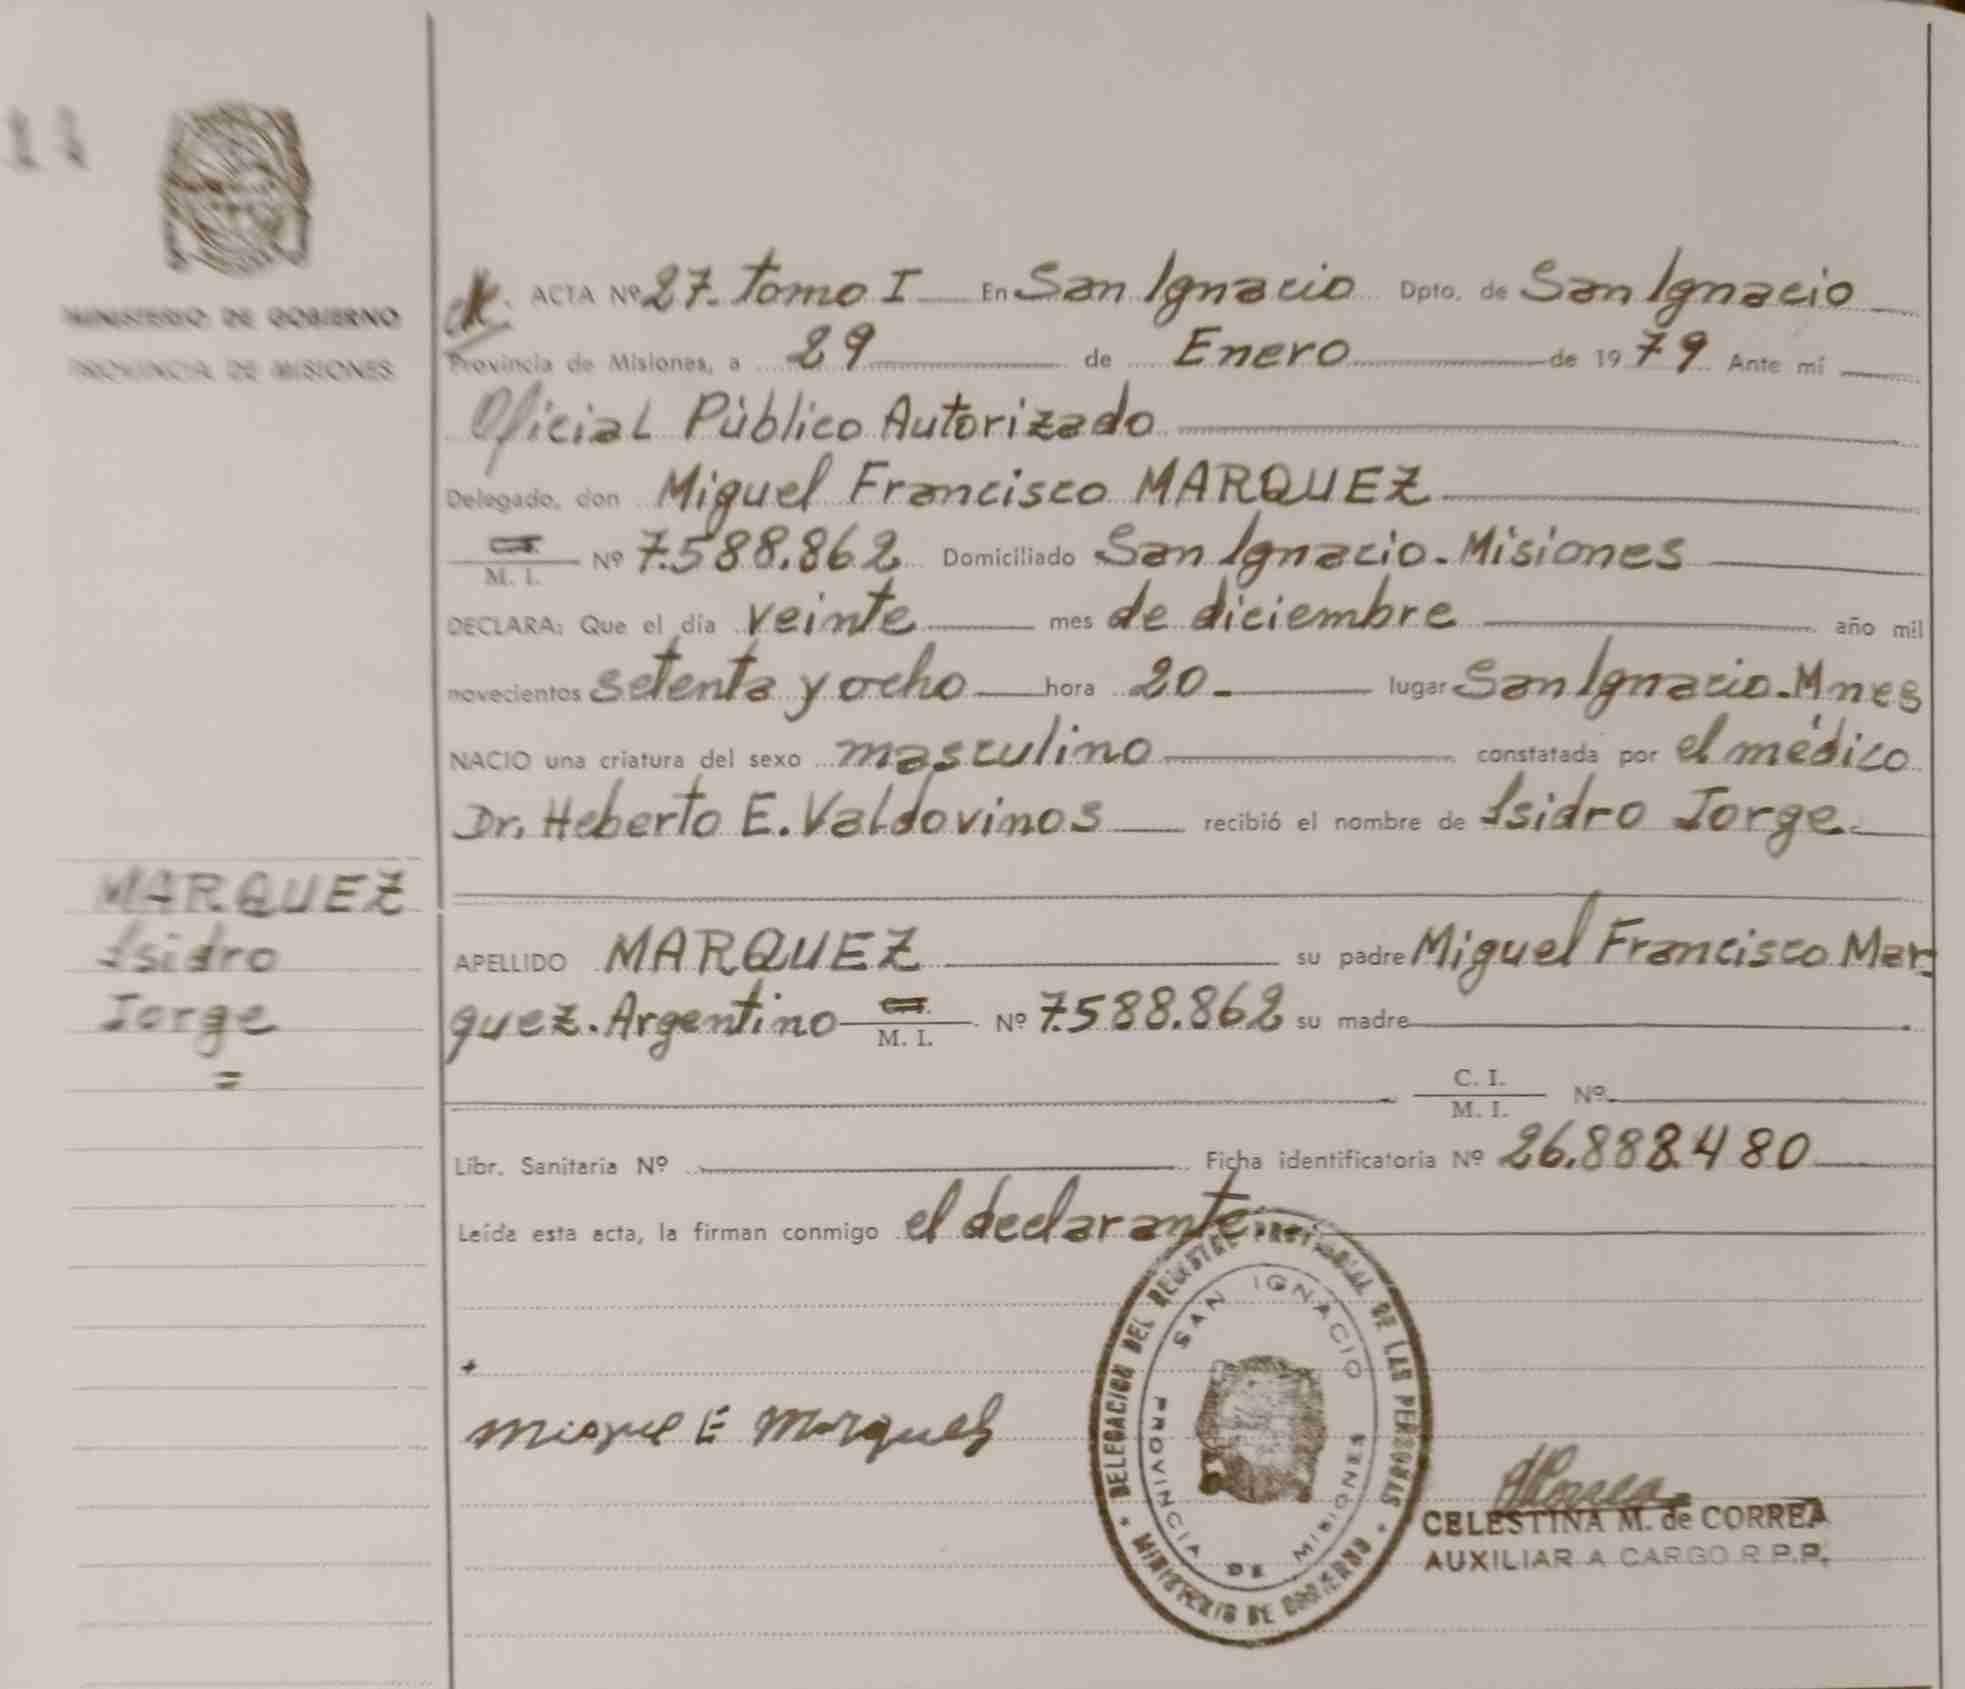 11
MINISTERIO DE GOBIERNO
PROVINCIA DE MISIONES
ACTA Nº 27. tomo I En San Ignacio Dpto. de San Ignacio
Provincia de Misiones, a 29 de Enero de 1979 Ante mí
Oficial Público Autorizado
Delegado, don Miguel Francisco MARQUEZ
M. I. Nº 7.588.862 Domiciliado San Ignacio. Misiones
DECLARA: Que el día veinte mes de diciembre año mil
novecientos setenta y ocho hora 20 lugar San Ignacio. Mnes
NACIO una criatura del sexo masculino constatada por el médico
Dr. Heberto E. Valdovinos recibió el nombre de Isidro Jorge
MARQUEZ
Isidro
Jorge
=
APELLIDO MARQUEZ su padre Miguel Francisco Mar-
quez. Argentino M. I. Nº 7.588.862 su madre
C. I.
M. I. Nº
Libr. Sanitaria Nº Ficha identificatoria Nº 26.888.480
Leída esta acta, la firman conmigo el declarante
DELEGACION DEL REGISTRO PROVINCIAL DE LAS PERSONAS
SAN IGNACIO
PROVINCIA DE MISIONES
MINISTERIO DE GOBIERNO
Miguel F Marquez
CELESTINA M. de CORREA
AUXILIAR A CARGO R.P.P.